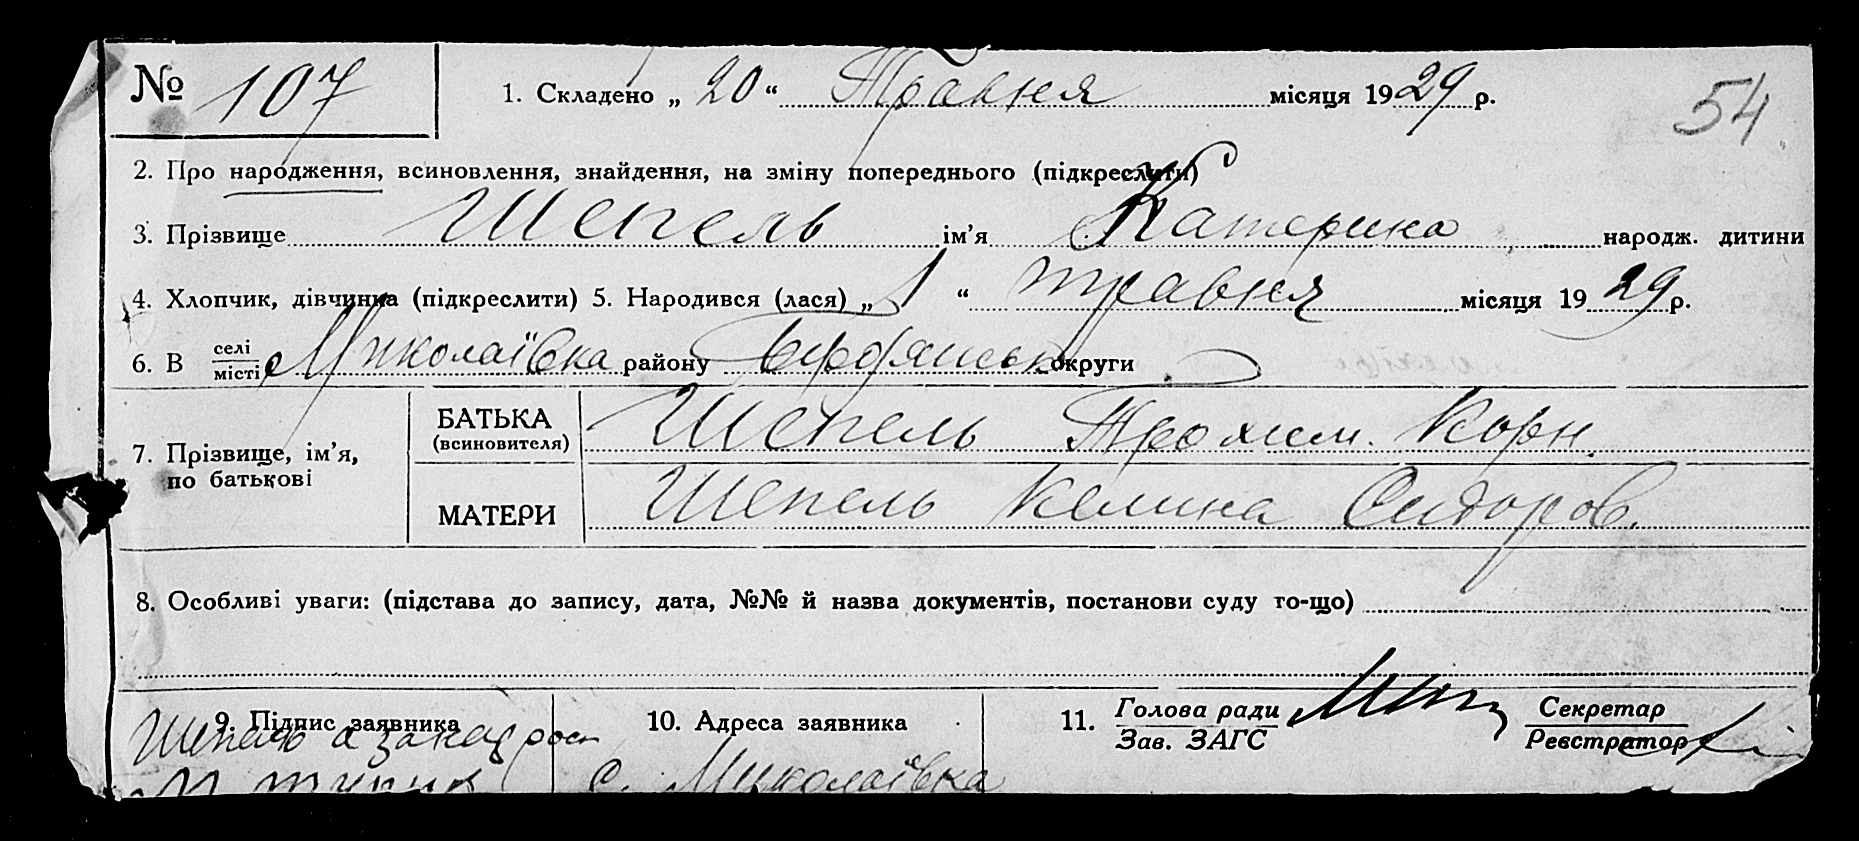 № 107 1. Складено „ 20 “ Травня місяця 1929 р. 54
2. Про народження, всиновлення, знайдення, на зміну попереднього (підкреслити)
3. Прізвище Шепель ім’я Катерина народж. дитини
4. Хлопчик, дівчинка (підкреслити) 5. Народився (лася) „ 1 “ травня місяця 1929 р.
6. В селі місті Миколаївка району Бердянськ округи
7. Прізвище, ім’я, по батькові
БАТЬКА (всиновителя) Шепель Трохим. Корн.
МАТЕРИ Шепель Келина Сидоров.
8. Особливі уваги: (підстава до запису, дата, №№ й назва документів, постанови суду то-що)
9. Підпис заявника 10. Адреса заявника 11. Голова ради Зав. ЗАГС Секретар Реєстратор
Шепель
с. Миколаївка